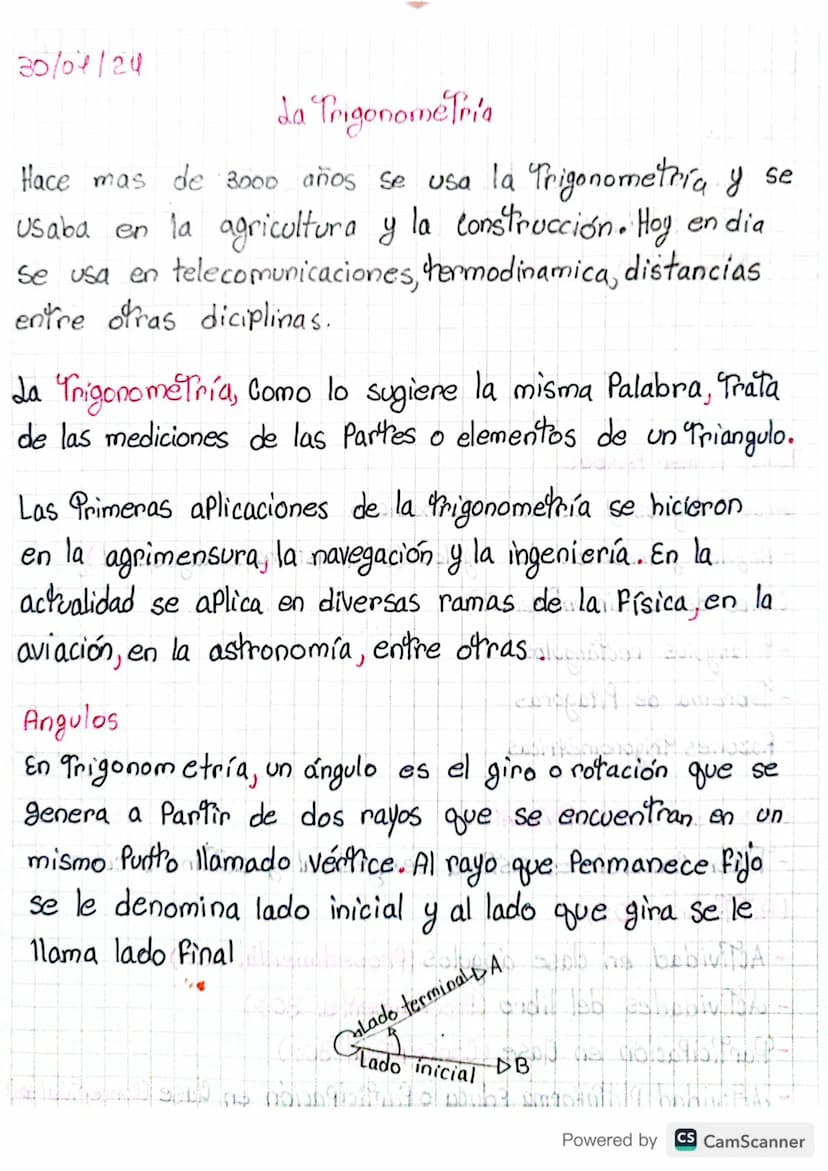 30/07/24
La Trigonometría
Hace mas de 3000 años se usa la Trigonometría y se
usaba en la agricultura y la construcción. Hoy en dia
se usa en telecomunicaciones, termodinamica, distancias
entre otras diciplinas.
La Trigonometría, Como lo sugiere la misma Palabra, Trata
de las mediciones de las Partes o elementos de un Triangulo.
Las Primeras aplicaciones de la trigonometría se hicieron
en la agrimensura, la navegación y la ingeniería. En la
actualidad se aplica en diversas ramas de la Física, en la
aviación, en la astronomía, entre otras.
Angulos
En Trigonometría, un ángulo es el giro o rotación que se
genera a Partir de dos rayos que se encuentran en un
mismo Punto llamado vértice. Al rayo que Permanece Fijo
se le denomina lado inicial y al lado que gira se le
llama lado Final
Lado terminal A
Lado inicial B
Powered by CS CamScanner